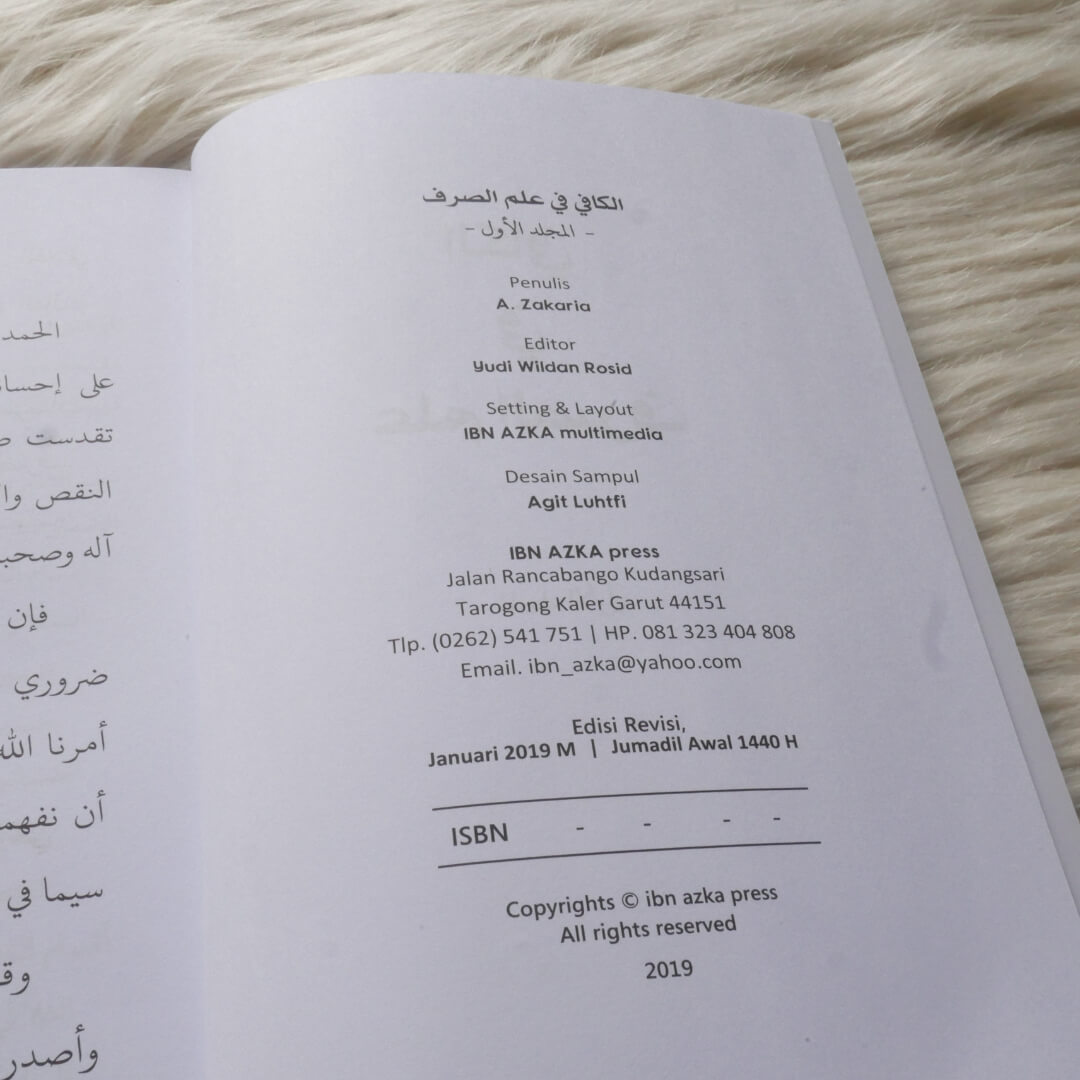 الكافي في علم الصرف
- المجلد الأول -
Penulis
A. Zakaria
Editor
Yudi Wildan Rosid
Setting & Layout
IBN AZKA multimedia
Desain Sampul
Agit Luhtfi
IBN AZKA press
Jalan Rancabango Kudangsari
Tarogong Kaler Garut 44151
Tlp. (0262) 541 751 | HP. 081 323 404 808
Email. ibn_azka@yahoo.com
Edisi Revisi,
Januari 2019 M | Jumadil Awal 1440 H
ISBN - - - -
Copyrights © ibn azka press
All rights reserved
2019
الحمد
على
تقدست
النقص
آله
فإن
ضروري
أمرنا الله
أن
سيما في